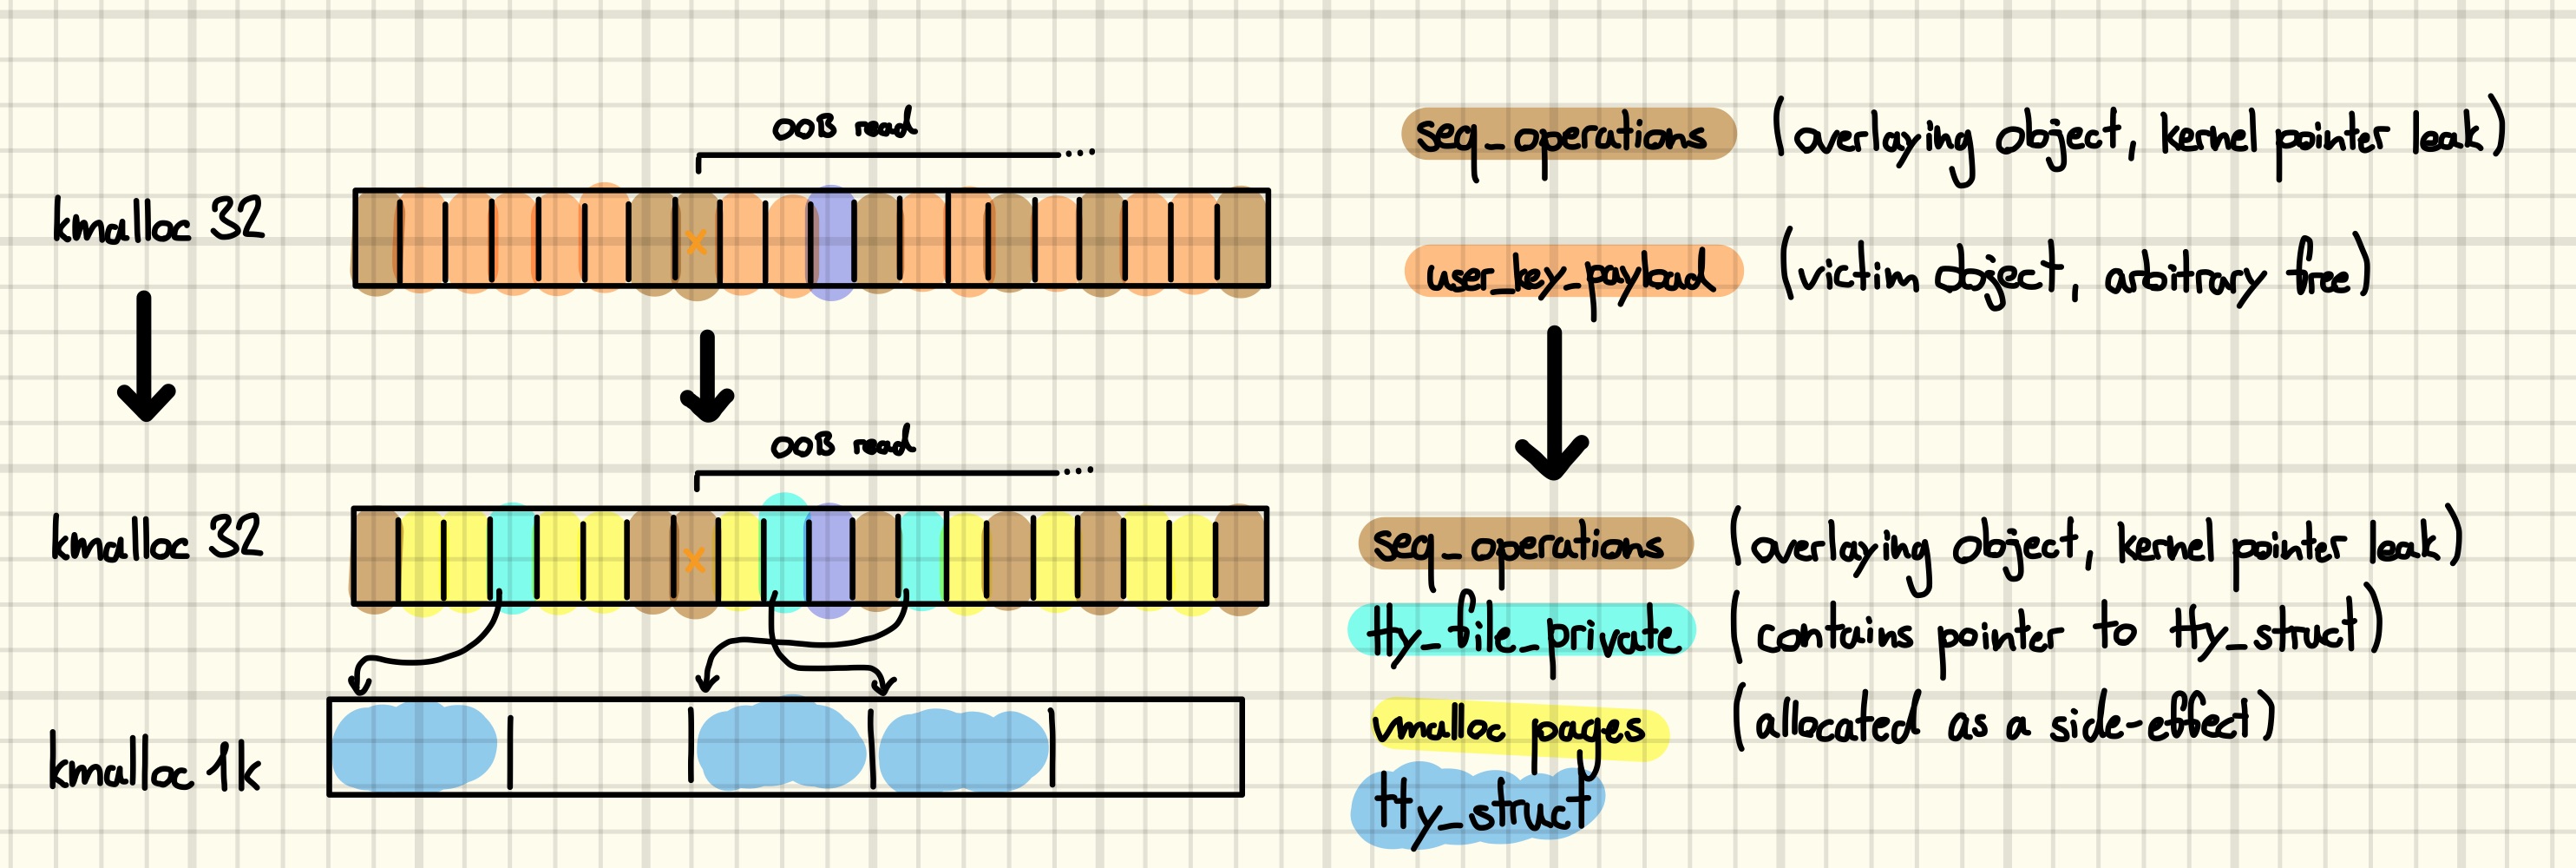 OOB read
seq_operations (overlaying object, kernel pointer leak)
kmalloc 32
x
user_key_payload (victim object, arbitrary free)
OOB read
kmalloc 32
x
seq_operations (overlaying object, kernel pointer leak)
tty_file_private (contains pointer to tty_struct)
vmalloc pages (allocated as a side-effect)
kmalloc 1k
tty_struct